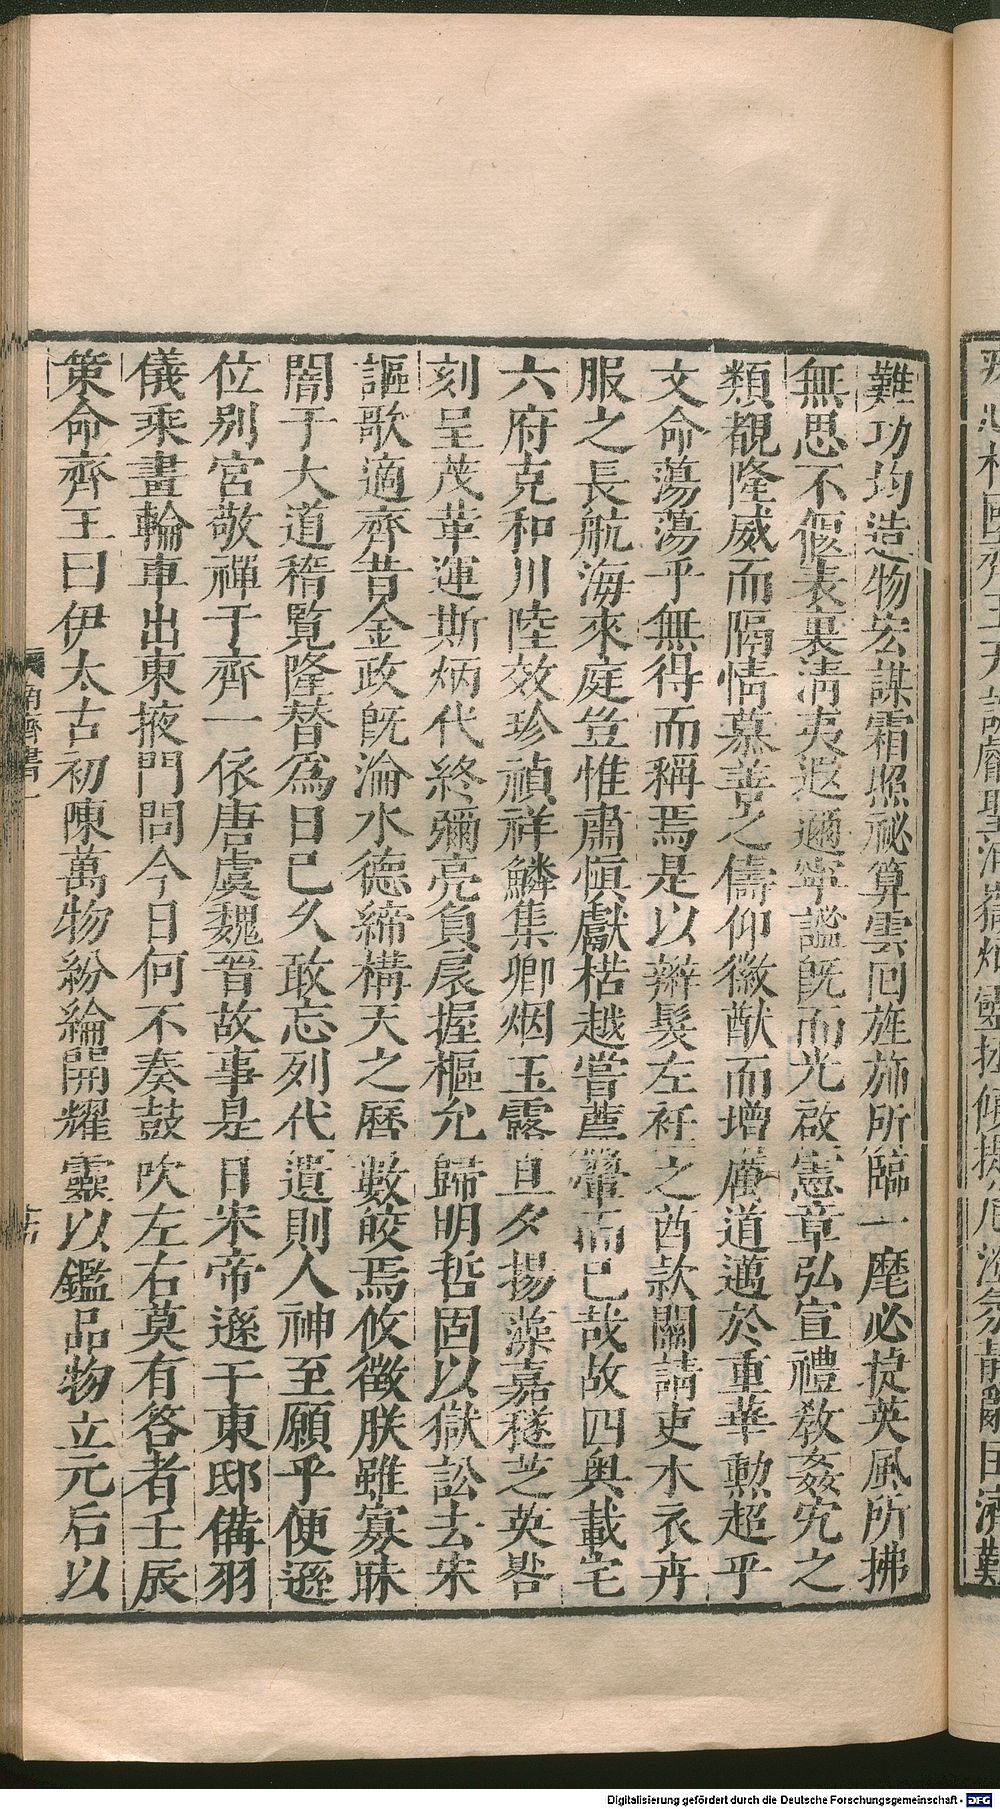 難功均造物宏謀霜照祕算雲回旌旆所臨一麾必捷英風所拂
無思不偃表裏淸夷遐邇寧謐旣而光啟憲章弘宣禮敎姦宄之
類覩隆威而隔情慕善之儔仰徽猷而增厲道邁於重華勲超乎
文命蕩蕩乎無得而稱焉是以辮髮左衽之酋款關請吏木衣卉
服之長航海來庭豈惟肅愼獻楛越嘗薦翬而已哉故四奧載宅
六府克和川陸效珍禎祥鱗集卿烟玉露旦夕揚藻嘉穟芝英晷
刻呈茂革運斯炳代終彌亮負扆握樞允歸明哲固以獄訟去宋
謳歌適齊昔金政旣淪水德締構天之曆數皎焉攸徵朕雖寡昧
闇于大道稽覽隆替爲日已久敢忘列代遺則人神至願乎便遜
位別宮敬禪于齊一依唐虞魏晉故事是日宋帝遜于東邸備羽
儀乘畫輪車出東掖門問今日何不奏鼓吹左右莫有答者壬辰
策命齊王曰伊太古初陳萬物紛綸開耀靈以鑑品物立元后以
南齊書一
十六
Digitalisierung gefördert durch die Deutsche Forschungsgemeinschaft - DFG